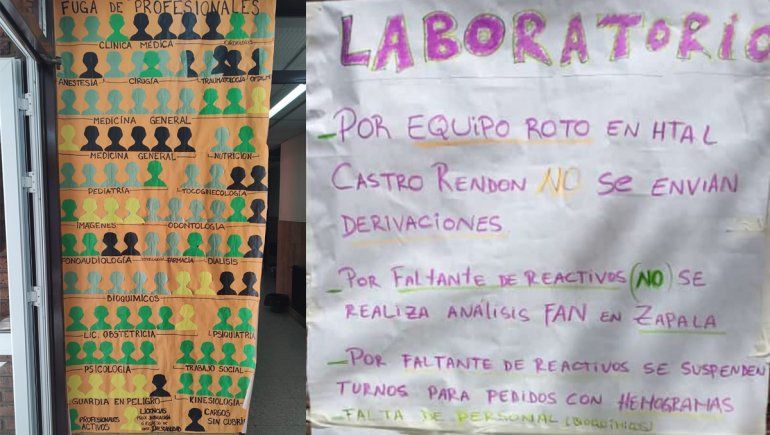 FUGA DE PROFESIONALES
CLINICA MÉDICA
ANESTESIA CIRUGÍA TRAUMATOLOGIA
MEDICINA GENERAL
MEDICINA GENERAL NUTRICIÓN
PEDIATRÍA TOCOGINECOLOGÍA
IMÁGENES ODONTOLOGÍA
FONOAUDIOLOGÍA FARMACIA DIALISIS
BIOQUIMICOS
LIC. OBSTETRICIA PSIQUIATRIA
PSICOLOGIA TRABAJO SOCIAL
GUARDIA EN PELIGRO KINESIOLOGÍA
PROFESIONALES
ACTIVOS
LICENCIAS
CARGOS
SIN CUBRIR
LABORATORIO
- POR EQUIPO ROTO EN HTAL
CASTRO RENDON NO SE ENVIAN
DERIVACIONES
- POR FALTANTE DE REACTIVOS (NO) SE
REALIZA ANÁLISIS FAN EN ZAPALA
- POR FALTANTE DE REACTIVOS SE SUSPENDEN
TURNOS PARA PEDIDOS CON HEMOGRAMAS
FALTA DE PERSONAL (BIOQUIMICOS)